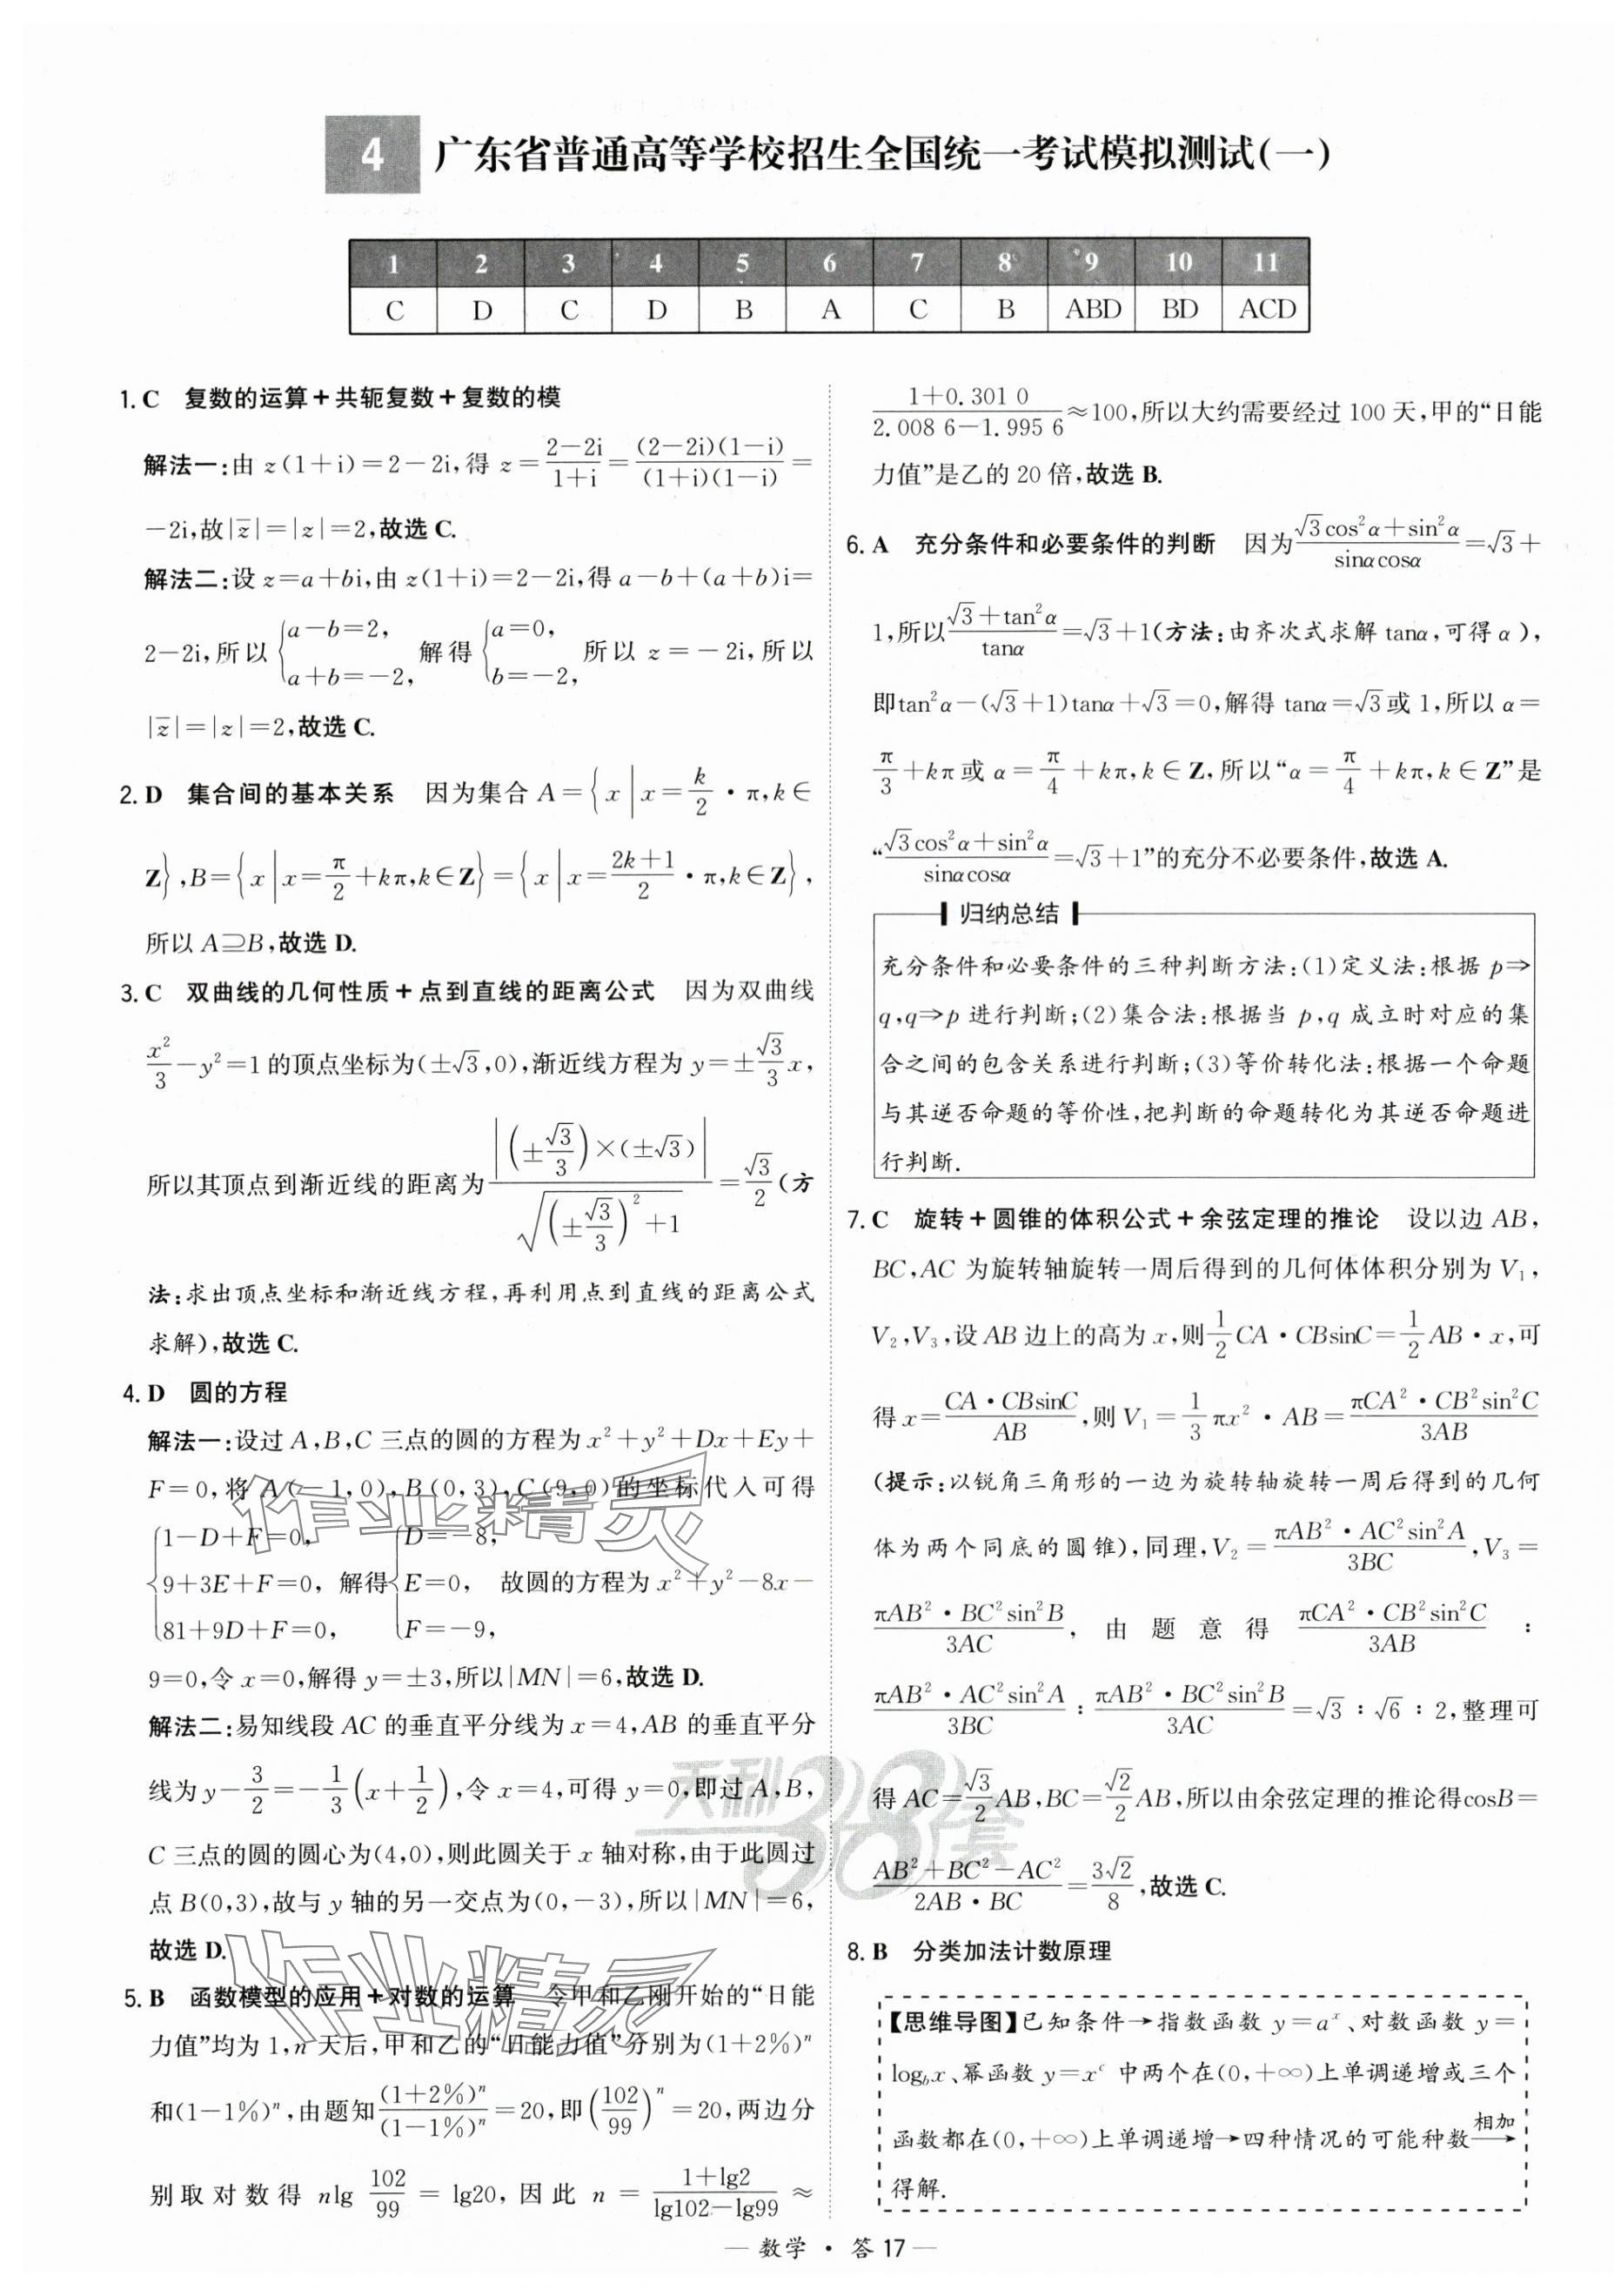 4 广东省普通高等学校招生全国统一考试模拟测试(一)
1 2 3 4 5 6 7 8 9 10 11
C D C D B A C B ABD BD ACD
1. C 复数的运算+共轭复数+复数的模
解法一:由 z(1+i)=2-2i,得 z=\frac{2-2i}{1+i}=\frac{(2-2i)(1-i)}{(1+i)(1-i)}=
-2i,故|\overline{z}|=|z|=2,故选 C.
解法二:设 z=a+bi,由 z(1+i)=2-2i,得 a-b+(a+b)i=
2-2i,所以 {a-b=2, a+b=-2, 解得 {a=0, b=-2, 所以 z=-2i,所以
|\overline{z}|=|z|=2,故选 C.
2. D 集合间的基本关系 因为集合 A={x|x=\frac{k}{2}·π,k∈
Z},B={x|x=\frac{π}{2}+kπ,k∈Z}={x|x=\frac{2k+1}{2}·π,k∈Z},
所以 A⊇B,故选 D.
3. C 双曲线的几何性质+点到直线的距离公式 因为双曲线
\frac{x²}{3}-y²=1 的顶点坐标为(±√3,0),渐近线方程为 y=±\frac{√3}{3}x,
所以其顶点到渐近线的距离为\frac{|(±\frac{√3}{3})×(±√3)|}{\sqrt{(±\frac{√3}{3})²+1}}=\frac{√3}{2}(方
法:求出顶点坐标和渐近线方程,再利用点到直线的距离公式
求解),故选 C.
4. D 圆的方程
解法一:设过 A,B,C 三点的圆的方程为 x²+y²+Dx+Ey+
F=0,将 A(-1,0),B(0,3),C(9,0)的坐标代入可得
{1-D+F=0, 9+3E+F=0, 81+9D+F=0, 解得{D=-8, E=0, F=-9, 故圆的方程为 x²+y²-8x-
9=0,令 x=0,解得 y=±3,所以|MN|=6,故选 D.
解法二:易知线段 AC 的垂直平分线为 x=4,AB 的垂直平分
线为 y-\frac{3}{2}=-\frac{1}{3}(x+\frac{1}{2}),令 x=4,可得 y=0,即过 A,B,
C 三点的圆的圆心为(4,0),则此圆关于 x 轴对称,由于此圆过
点 B(0,3),故与 y 轴的另一交点为(0,-3),所以|MN|=6,
故选 D.
5. B 函数模型的应用+对数的运算 令甲和乙刚开始的“日能
力值”均为 1,n 天后,甲和乙的“日能力值”分别为(1+2%)ⁿ
和(1-1%)ⁿ,由题知\frac{(1+2%)ⁿ}{(1-1%)ⁿ}=20,即(\frac{102}{99})ⁿ=20,两边分
别取对数得 nlg \frac{102}{99}=lg20,因此 n=\frac{1+lg2}{lg102-lg99}≈
\frac{1+0.301 0}{2.008 6-1.995 6}≈100,所以大约需要经过 100 天,甲的“日能
力值”是乙的 20 倍,故选 B.
6. A 充分条件和必要条件的判断 因为\frac{√3cos²α+sin²α}{sinαcosα}=√3+
1,所以\frac{√3+tan²α}{tanα}=√3+1(方法:由齐次式求解 tanα,可得 α),
即tan²α-(√3+1)tanα+√3=0,解得 tanα=√3或 1,所以 α=
\frac{π}{3}+kπ或 α=\frac{π}{4}+kπ,k∈Z,所以“α=\frac{π}{4}+kπ,k∈Z”是
“\frac{√3cos²α+sin²α}{sinαcosα}=√3+1”的充分不必要条件,故选 A.
归纳总结
充分条件和必要条件的三种判断方法:(1)定义法:根据 p⇒
q,q⇒p 进行判断;(2)集合法:根据当 p,q 成立时对应的集
合之间的包含关系进行判断;(3)等价转化法:根据一个命题
与其逆否命题的等价性,把判断的命题转化为其逆否命题进
行判断.
7. C 旋转+圆锥的体积公式+余弦定理的推论 设以边 AB,
BC,AC 为旋转轴旋转一周后得到的几何体体积分别为 V₁,
V₂,V₃,设 AB 边上的高为 x,则\frac{1}{2}CA·CBsinC=\frac{1}{2}AB·x,可
得 x=\frac{CA·CBsinC}{AB},则 V₁=\frac{1}{3}πx²·AB=\frac{πCA²·CB²sin²C}{3AB}
(提示:以锐角三角形的一边为旋转轴旋转一周后得到的几何
体为两个同底的圆锥),同理,V₂=\frac{πAB²·AC²sin²A}{3BC},V₃=
\frac{πAB²·BC²sin²B}{3AC},由题意得\frac{πCA²·CB²sin²C}{3AB}:
\frac{πAB²·AC²sin²A}{3BC}:\frac{πAB²·BC²sin²B}{3AC}=√3:√6:2,整理可
得 AC=\frac{√3}{2}AB,BC=\frac{√2}{2}AB,所以由余弦定理的推论得cosB=
\frac{AB²+BC²-AC²}{2AB·BC}=\frac{3√2}{8},故选 C.
8. B 分类加法计数原理
【思维导图】已知条件→指数函数 y=aˣ、对数函数 y=
log_b x、幂函数 y=x^c 中两个在(0,+∞)上单调递增或三个
函数都在(0,+∞)上单调递增→四种情况的可能种数\xrightarrow{相加}
得解.
— 数学 · 答 17 —
作业精灵
天利38套
作业精灵